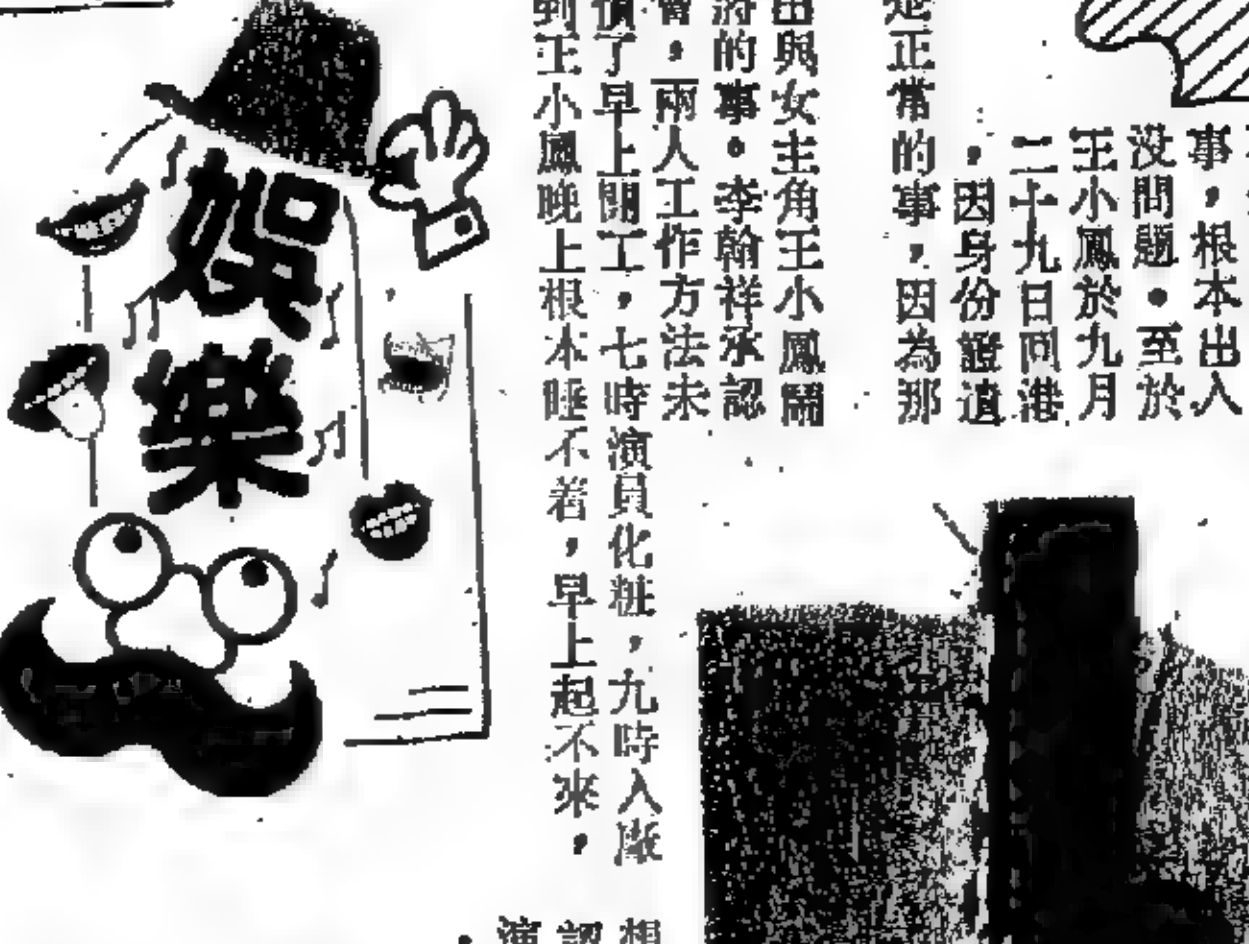 事，根本出入
没問題。至於
王小鳳於九月
二十九日回港
，因身份證遺
是正常的事，因為那
出與女主角王小鳳鬧
的事。李翰祥承認
會，兩人工作方法未
慣了早上開工，七時演員化粧，九時入廠
到王小鳳晚上根本睡不着，早上起不來，
想
認
演
娛樂